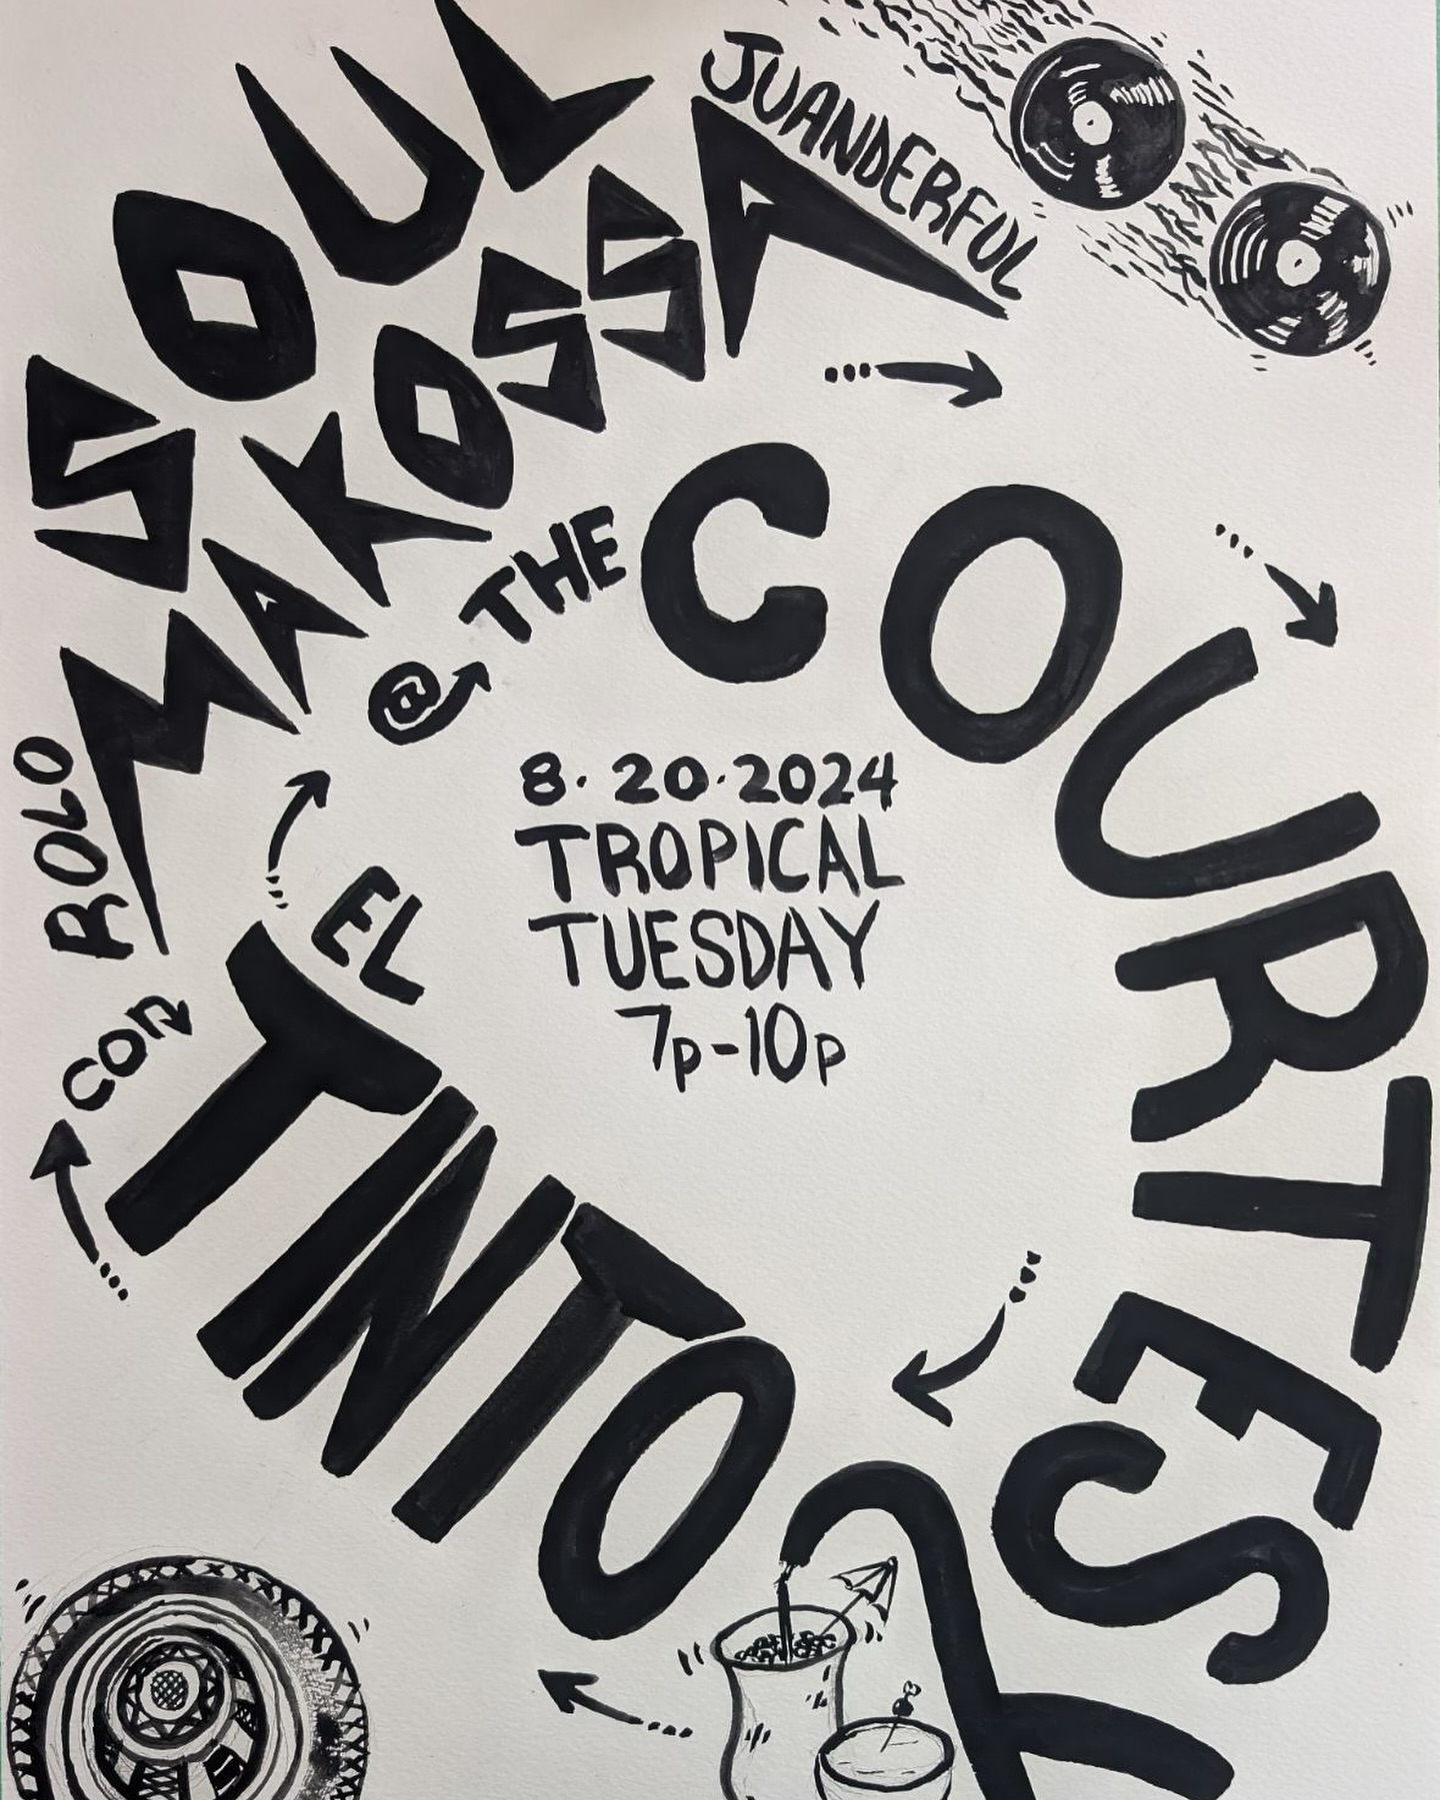 SOUL
MAKOSSA
JUANDERFUL
ROLO
@ THE
COURTESY
8·20·2024
TROPICAL
TUESDAY
7p-10p
CON
EL
TINTO